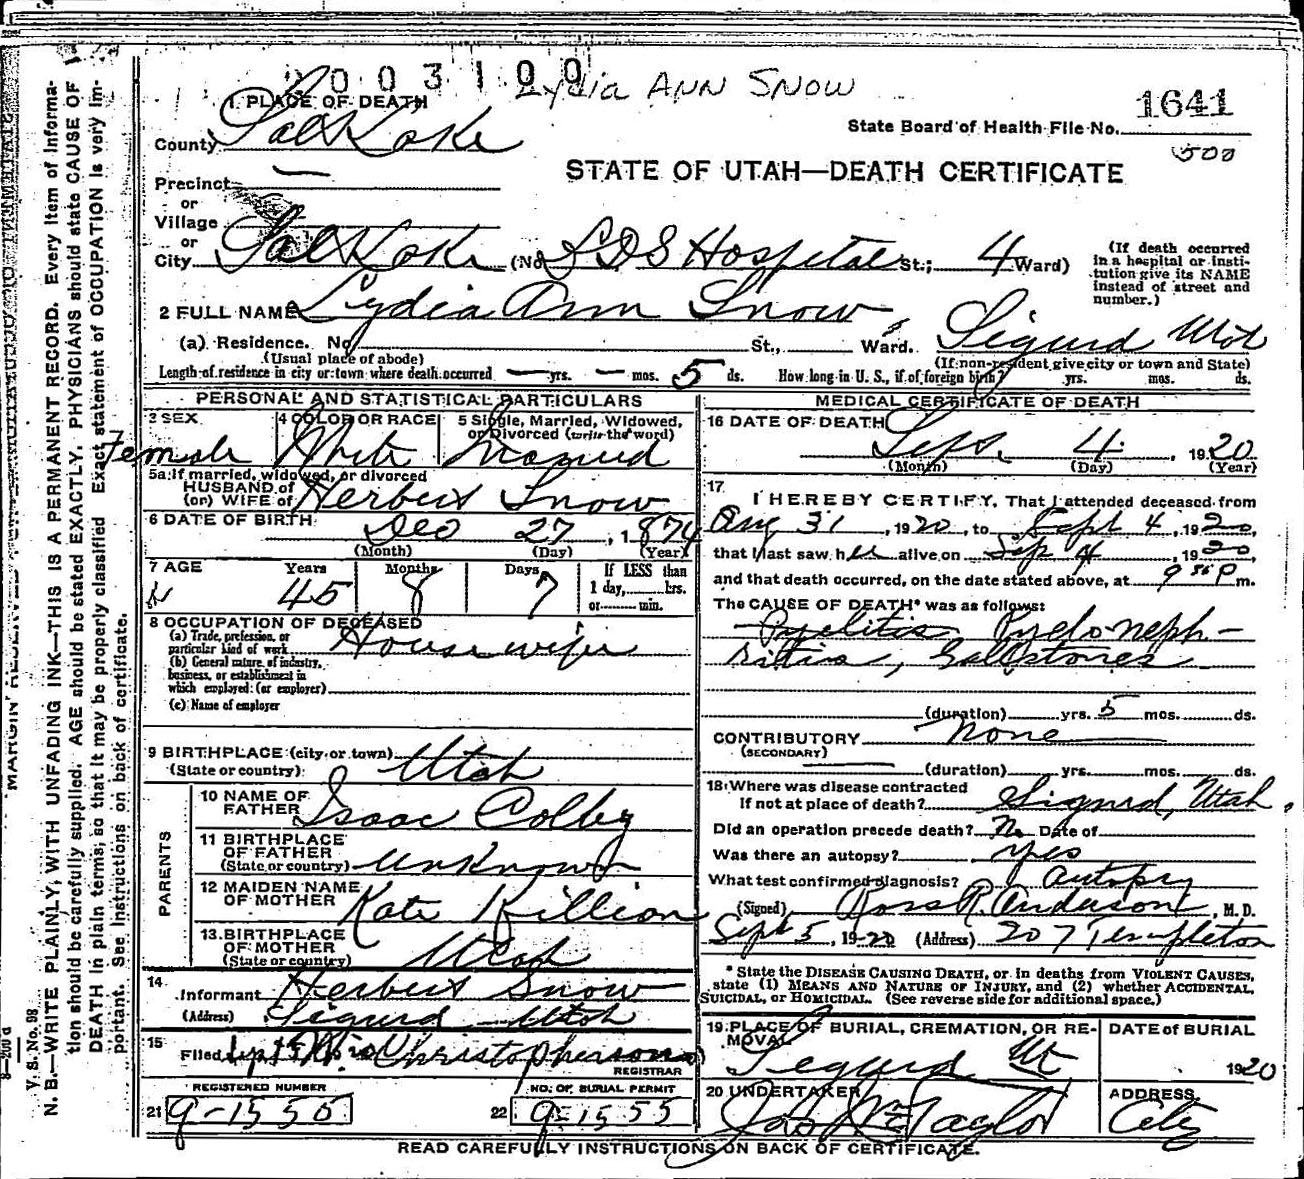 2003100 Lydia ANN SNOW
1641
State Board of Health File No.
500
STATE OF UTAH—DEATH CERTIFICATE
1 PLACE OF DEATH
County Salt Lake
Precinct —
or
Village
or
City Salt Lake (No. LDS Hospital St.; 4 Ward)
(If death occurred in a hospital or institution give its NAME instead of street and number.)
2 FULL NAME Lydia Ann Snow
(a) Residence. No. St., Ward. Sigurd Utah
(Usual place of abode) (If non-resident give city or town and State)
Length of residence in city or town where death occurred — yrs. — mos. 5 ds. How long in U. S., if of foreign birth? yrs. mos. ds.
PERSONAL AND STATISTICAL PARTICULARS
3 SEX Female
4 COLOR OR RACE White
5 Single, Married, Widowed, or Divorced (write the word) Married
5a If married, widowed, or divorced
HUSBAND of
(or) WIFE of Herbert Snow
6 DATE OF BIRTH Dec 27, 1874
(Month) (Day) (Year)
7 AGE Years 45 Months 8 Days 7
If LESS than 1 day, hrs. or min.
8 OCCUPATION OF DECEASED
(a) Trade, profession, or particular kind of work Housewife
(b) General nature of industry, business, or establishment in which employed (or employer)
(c) Name of employer
9 BIRTHPLACE (city or town) Utah
(State or country)
PARENTS
10 NAME OF FATHER Isaac Colby
11 BIRTHPLACE OF FATHER (State or country) Unknown
12 MAIDEN NAME OF MOTHER Kate Killion
13 BIRTHPLACE OF MOTHER (State or country) Utah
14 Informant Herbert Snow
(Address) Sigurd Utah
15 Filed Christopherson
REGISTRAR
REGISTERED NUMBER
21 9-1555
NO. OF BURIAL PERMIT
22 9-1555
MEDICAL CERTIFICATE OF DEATH
16 DATE OF DEATH Sept. 4, 1920
(Month) (Day) (Year)
17 I HEREBY CERTIFY, That I attended deceased from
Aug 31, 1920, to Sept 4, 1920,
that I last saw her alive on Sep 4, 1920
and that death occurred, on the date stated above, at 9 50 P m.
The CAUSE OF DEATH* was as follows:
Pyelitis Pyeloneph-
ritis, Gallstones
(duration) yrs. 5 mos. ds.
CONTRIBUTORY None
(SECONDARY)
(duration) yrs. mos. ds.
18 Where was disease contracted
If not at place of death? Sigurd, Utah.
Did an operation precede death? No Date of
Was there an autopsy? yes
What test confirmed diagnosis? autopsy
(Signed) Ross R. Anderson, M. D.
Sept 5, 1920 (Address) 207 Templeton
* State the DISEASE CAUSING DEATH, or in deaths from VIOLENT CAUSES, state (1) MEANS AND NATURE OF INJURY, and (2) whether ACCIDENTAL, SUICIDAL, or HOMICIDAL. (See reverse side for additional space.)
19 PLACE OF BURIAL, CREMATION, OR REMOVAL Sigurd Ut
DATE OF BURIAL 1920
20 UNDERTAKER Jos Wm Taylor
ADDRESS City
READ CAREFULLY INSTRUCTIONS ON BACK OF CERTIFICATE.
V. S. No. 98
N. B.—WRITE PLAINLY, WITH UNFADING INK—THIS IS A PERMANENT RECORD. Every item of informa-
tion should be carefully supplied. AGE should be stated EXACTLY. PHYSICIANS should state CAUSE OF
DEATH in plain terms, so that it may be properly classified Exact statement of OCCUPATION is very im-
portant. See instructions on back of certificate.